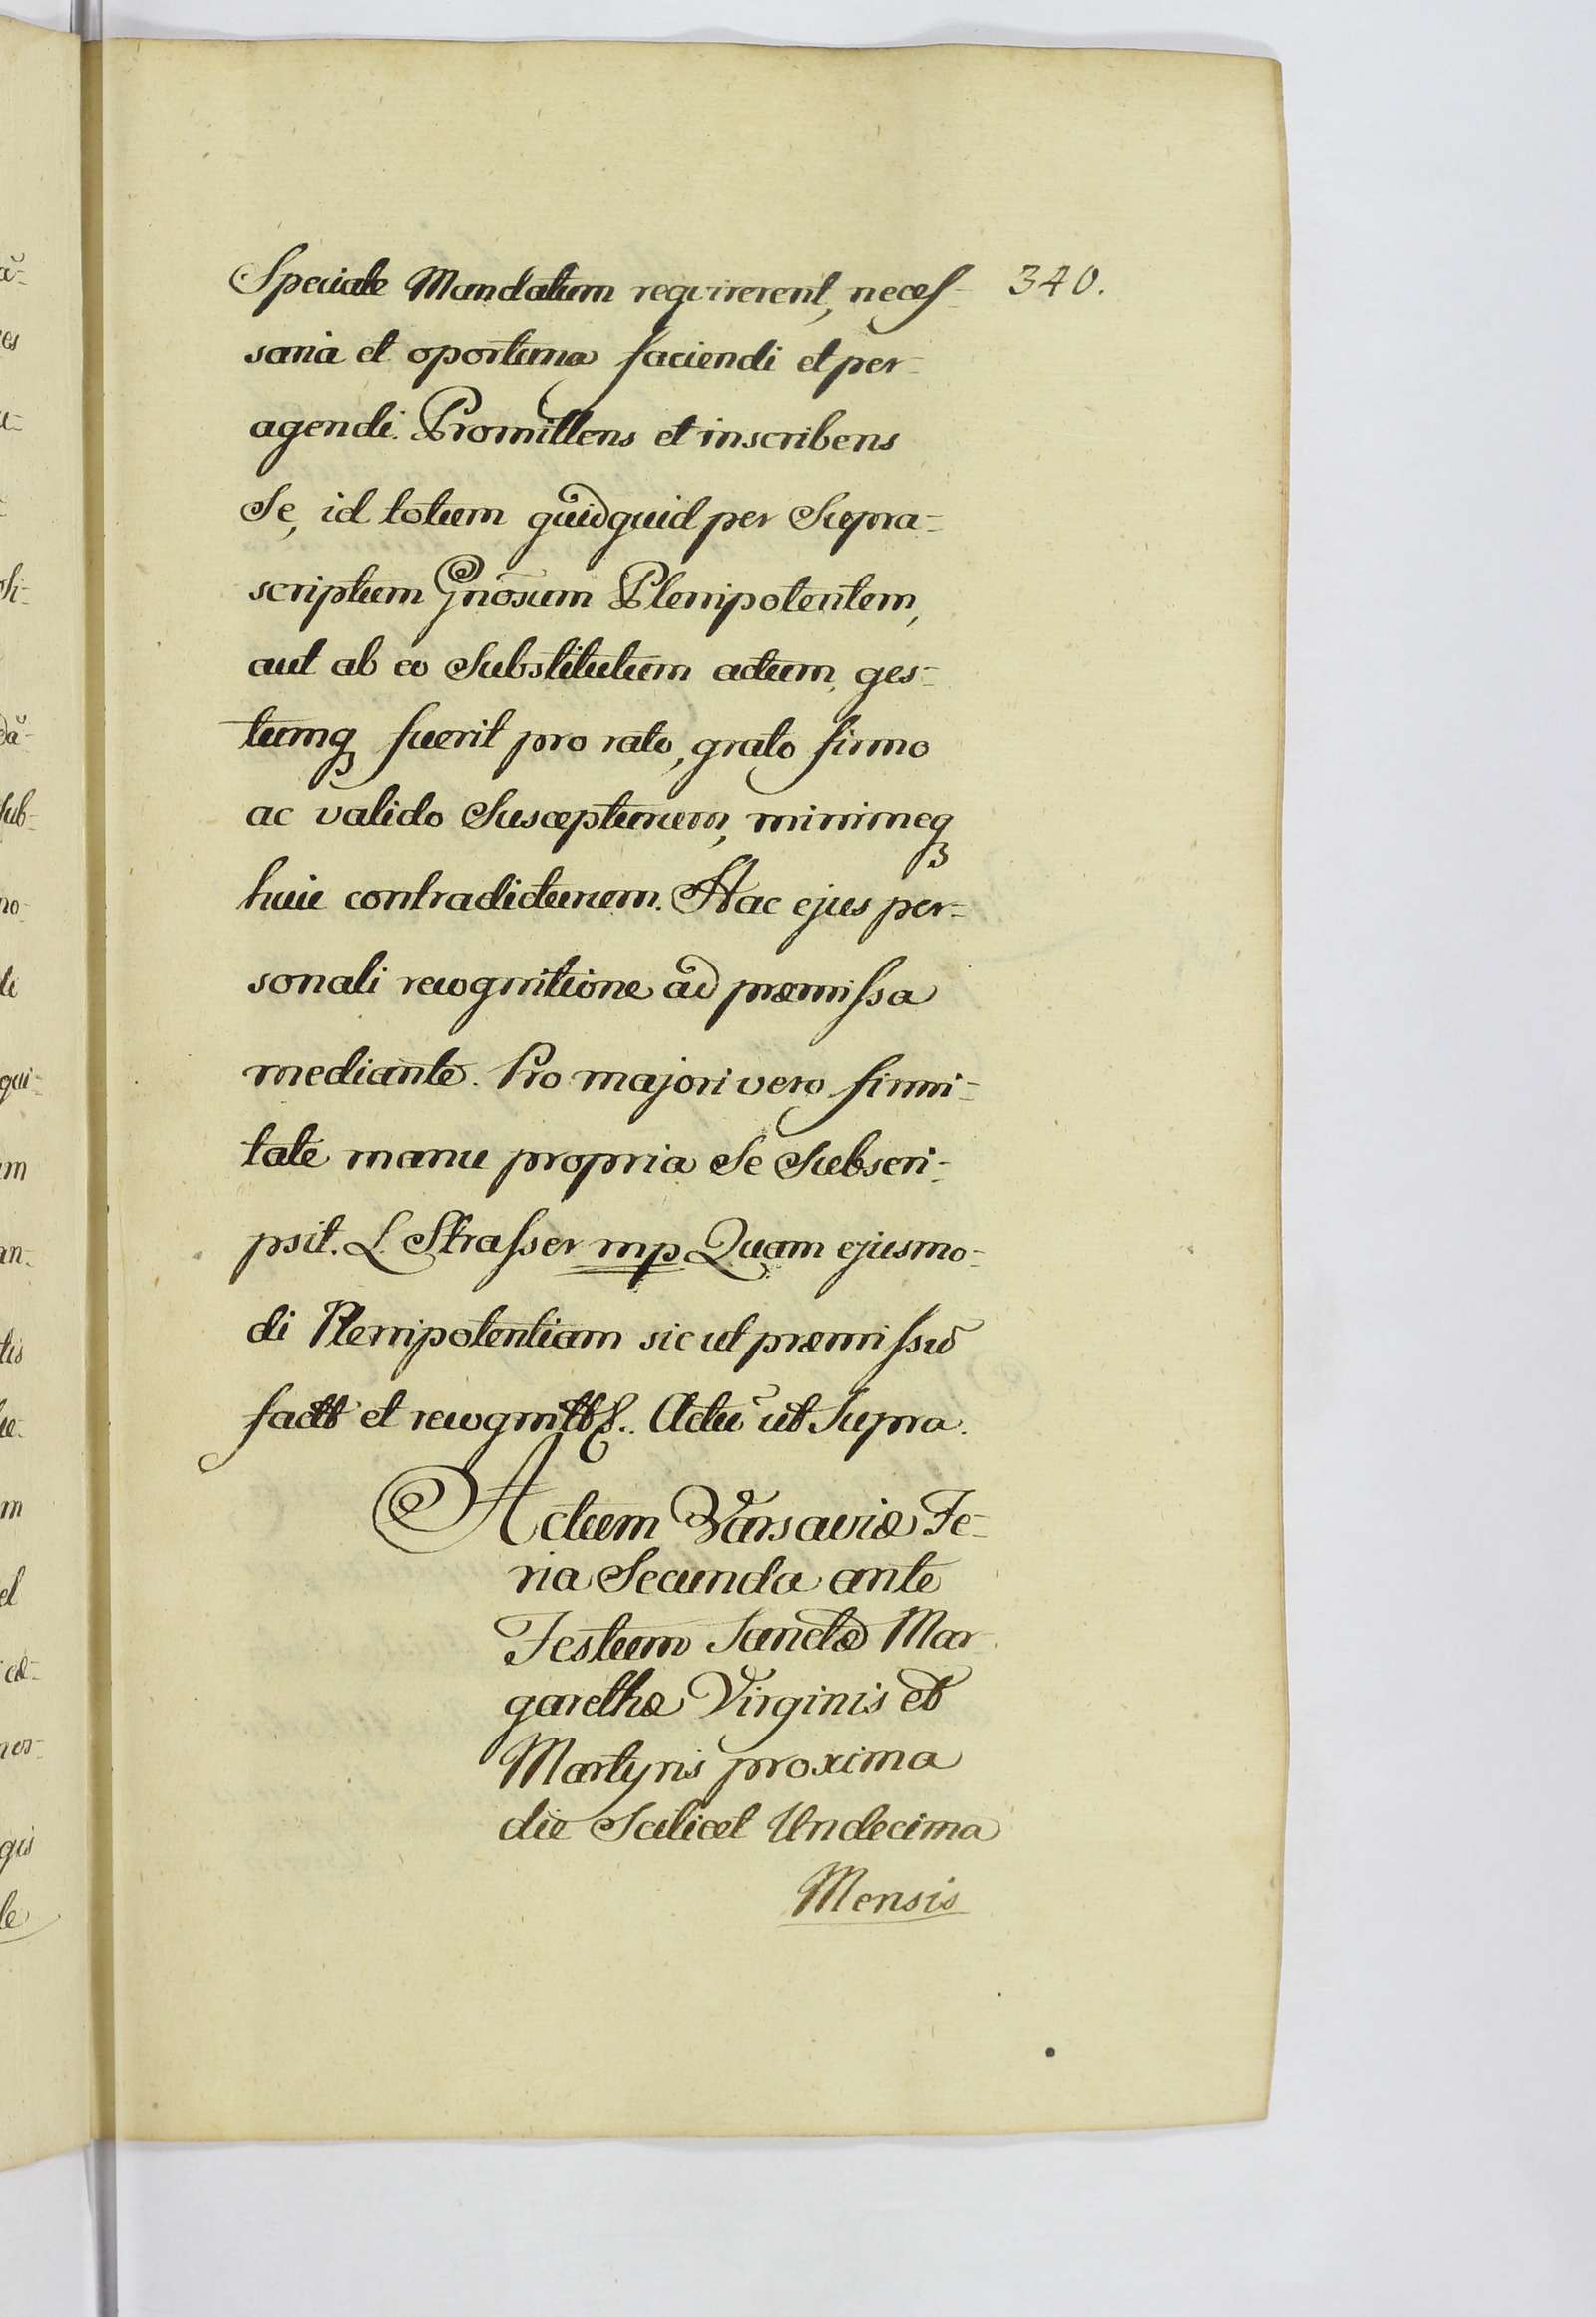 340.
Speciale Mandatum requirerent, neces-
saria et oportuna faciendi et per-
agendi. Promittens et inscribens
Se, id totum quidquid per Supra-
scriptum Gnosum Plenipotentem,
aut ab eo Substitutum actum, ges-
tumq fuerit pro rato, grato firmo
ac valido Suscepturum, minimeq
huic contradicturum. Hac ejus per-
sonali recognitione ad præmissa
mediante. Pro majori vero firmi-
tate manu propria Se Subscri-
psit. L. Strasser mp Quam ejusmo-
di Plenipotentiam sic ut præmissũ
factt et recognitt &. Actũ ut Supra.
Actum Varsaviæ Fe-
ria Secunda ante
Festum Sanctæ Mar-
garethæ Virginis et
Martyris proxima
die Scilicet Undecima
Mensis